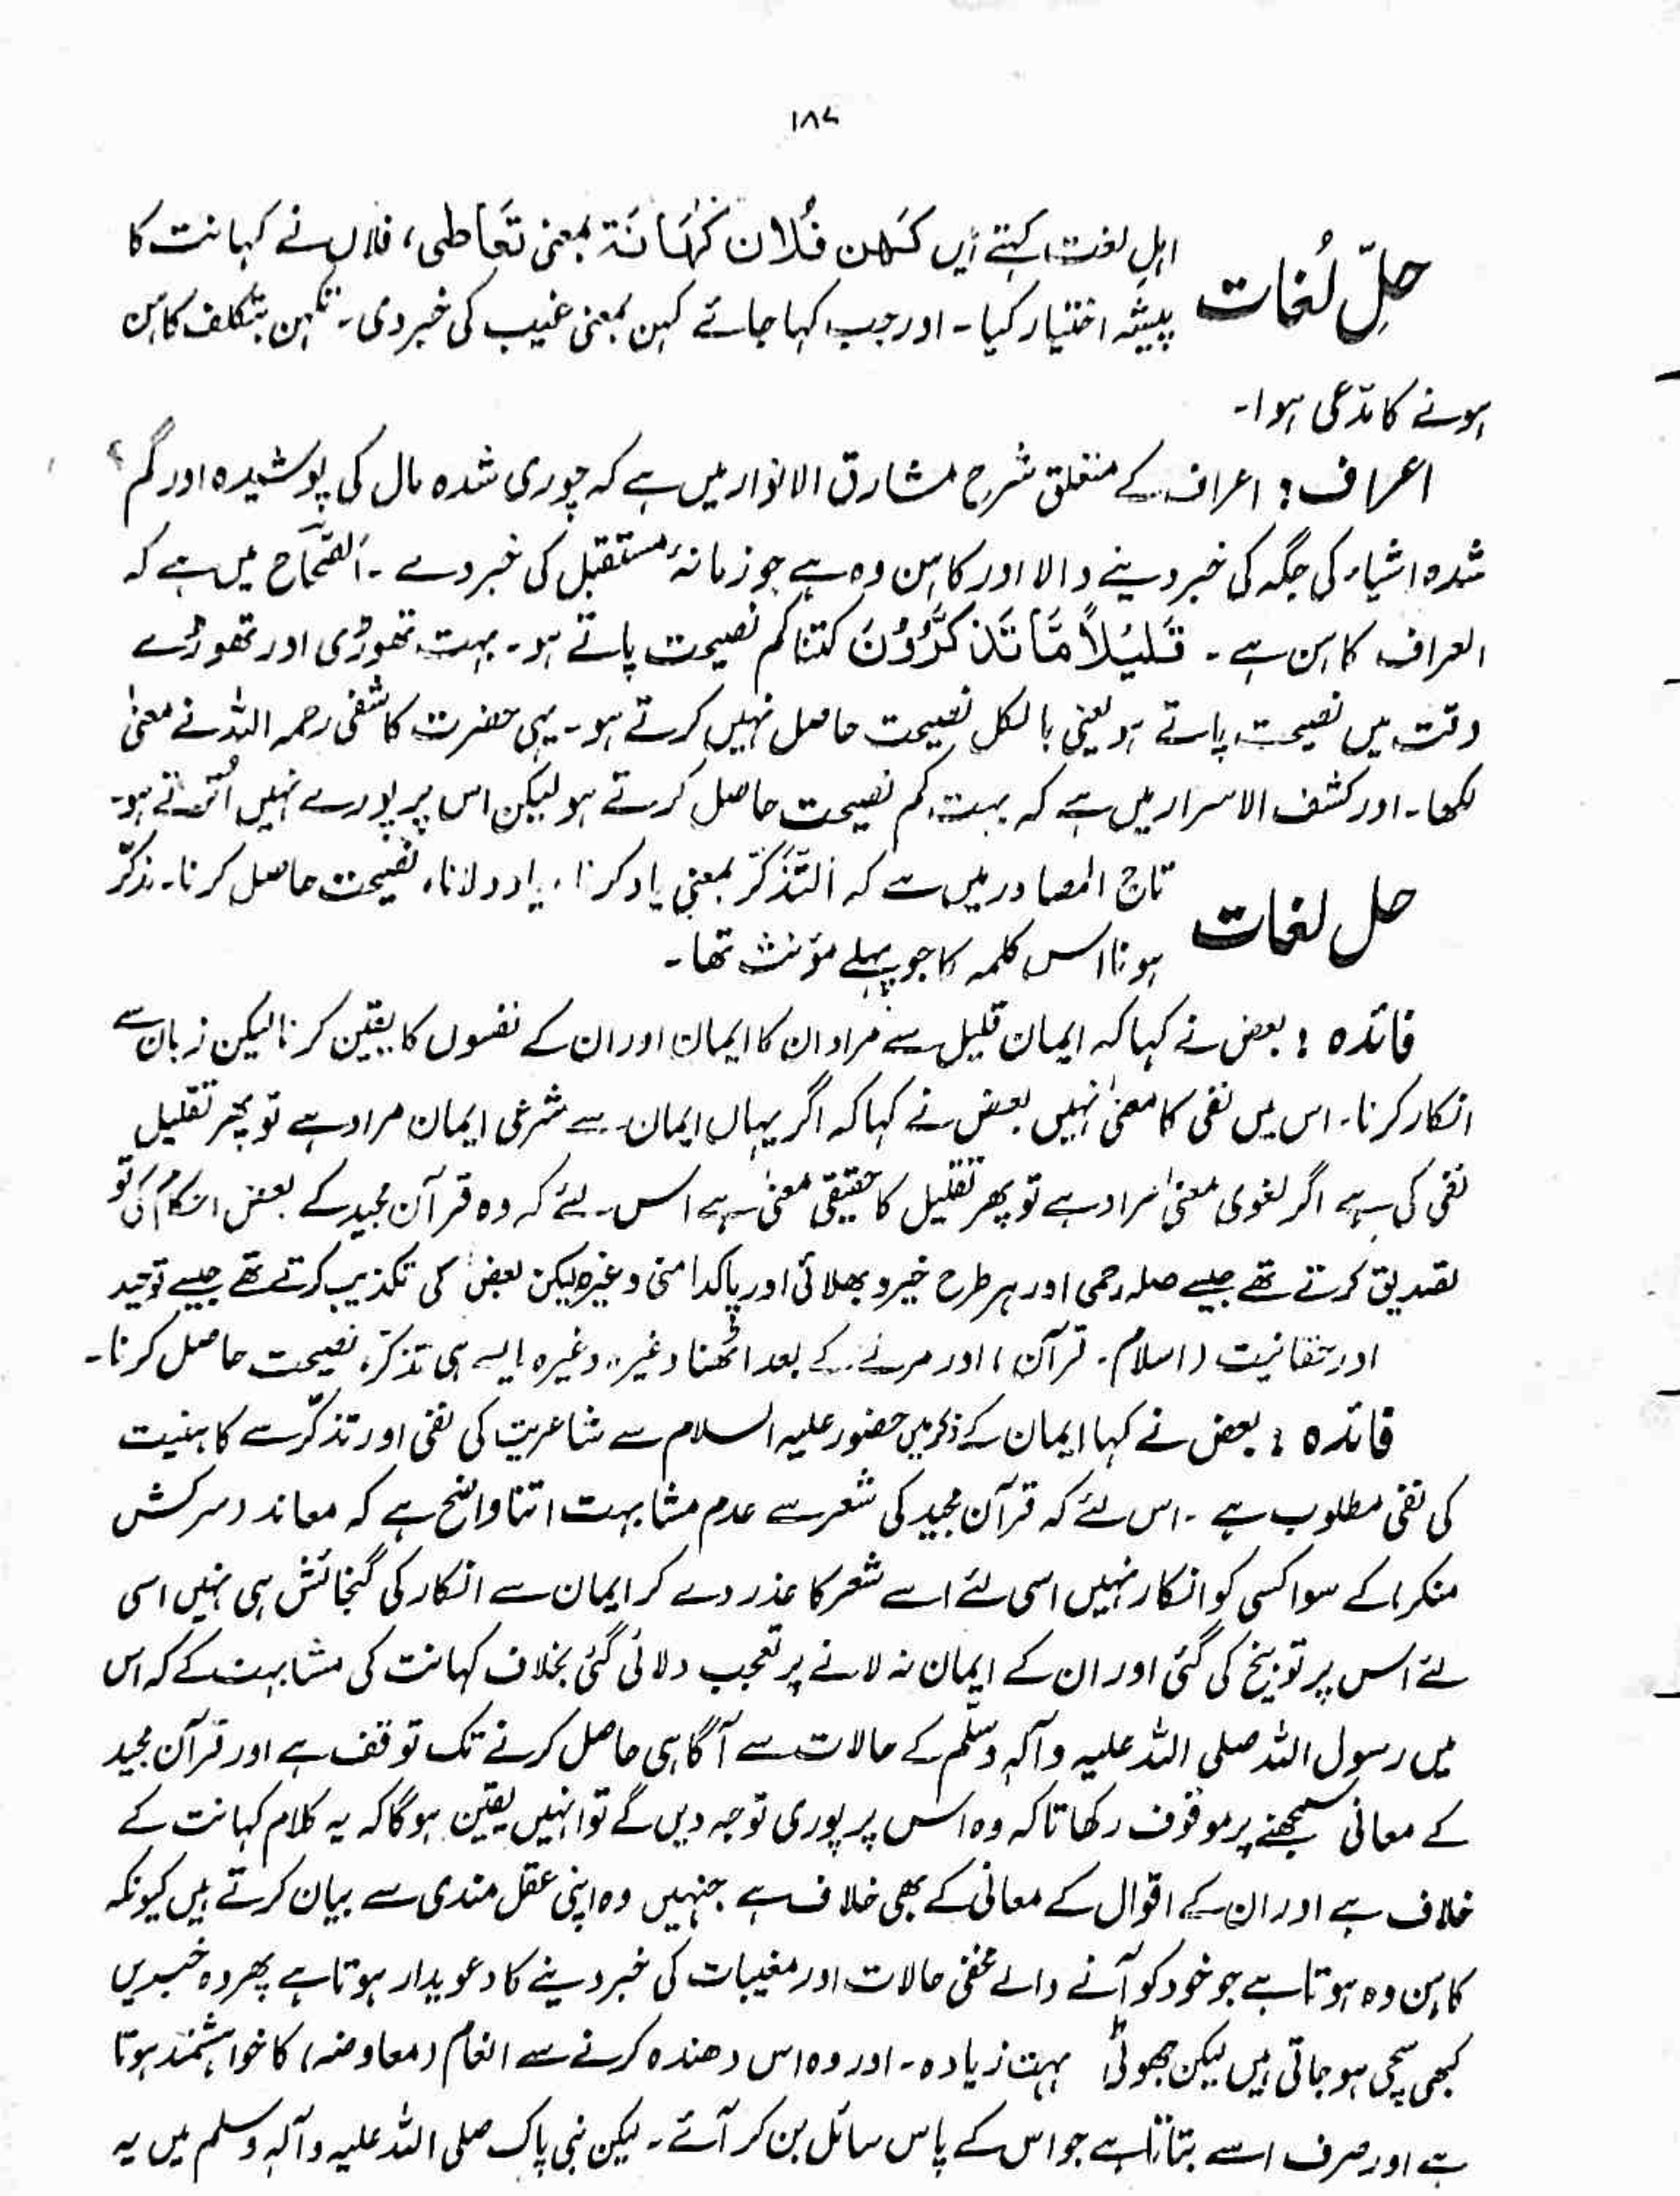 ۱۸۷
حلِّ لُغات
اہلِ لغت کہتے ہیں کَھن فُلان کَہَانَۃ بمعنی تَعَاطی، فلاں نے کہانت کا
پیشہ اختیار کیا۔ اور جب کہا جائے کہن بمعنی غیب کی خبر دی۔ تکہن بتکلف کاہن
ہونے کا مدّعی ہوا۔
اعراف: اعراف کے متعلق شرح مشارق الانوار میں ہے کہ چوری شدہ مال کی پوشیدہ اور گم
شدہ اشیاء کی جگہ کی خبر دینے والا اور کاہن وہ ہے جو زمانۂ مستقبل کی خبر دے۔ اَلصَّحَاح میں ہے کہ
العراف کاہن ہے۔ قَلِیْلاً مَّا تَذَکَّرُوْنَ کتنا کم نصیحت پاتے ہو۔ بہت تھوڑی اور تھوڑے
وقت میں نصیحت پاتے ہو یعنی بالکل نصیحت حاصل نہیں کرتے ہو۔ یہی حضرت کاشفی رحمہ اللہ نے معنیٰ
لکھا۔ اور کشف الاسرار میں ہے کہ بہت کم نصیحت حاصل کرتے ہو لیکن اس پر پورے نہیں اُترتے ہو۔
حل لغات
تاج المصادر میں ہے کہ اَلتَّذَکُّر بمعنی یاد کرنا، یاد دلانا، نصیحت حاصل کرنا۔ مذکّر
ہونا اس کلمہ کا جو پہلے مؤنث تھا۔
فائدہ: بعض نے کہا کہ ایمان قلیل سے مراد ان کا ایمان اور ان کے نفسوں کا یقین کرنا لیکن زبان سے
انکار کرنا۔ اس میں نفی کا معنیٰ نہیں بعض نے کہا کہ اگر یہاں ایمان سے شرعی ایمان مراد ہے تو پھر تقلیل
نفی کی ہے اگر لغوی معنیٰ مراد ہے تو پھر تقلیل کا حقیقی معنیٰ ہے اس لئے کہ وہ قرآن مجید کے بعض احکام کی تو
تصدیق کرتے تھے جیسے صلہ رحمی اور ہر طرح خیر و بھلائی اور پاکدامنی وغیرہ لیکن بعض کی تکذیب کرتے تھے جیسے توحید
اور حقانیت (اسلام۔ قرآن) اور مرنے کے بعد اٹھنا وغیرہ وغیرہ ایسے ہی تذکرّ، نصیحت حاصل کرنا۔
فائدہ: بعض نے کہا ایمان کے ذکر میں حضور علیہ السلام سے شاعریت کی نفی اور تذکّر سے کاہنیت
کی نفی مطلوب ہے۔ اس لئے کہ قرآن مجید کی شعر سے عدم مشابہت اتنا واضح ہے کہ معاند (سرکش
منکر) کے سوا کسی کو انکار نہیں اسی لئے اسے شعر کا عذر دے کر ایمان سے انکار کی گنجائش ہی نہیں اسی
لئے اس پر توبیخ کی گئی اور ان کے ایمان نہ لانے پر تعجب دلائی گئی بخلاف کہانت کی مشابہت کے کہ اس
میں رسول اللہ صلی اللہ علیہ وآلہٖ وسلّم کے حالات سے آگاہی حاصل کرنے تک توقف ہے اور قرآن مجید
کے معانی سمجھنے پر موقوف رکھا تاکہ وہ اس پر پوری توجہ دیں گے تو انہیں یقین ہوگا کہ یہ کلام کہانت کے
خلاف ہے اور ان کے اقوال کے معانی کے بھی خلاف ہے جنہیں وہ اپنی عقل مندی سے بیان کرتے ہیں کیونکہ
کاہن وہ ہوتا ہے جو خود کو آنے والے مخفی حالات اور مغیبات کی خبر دینے کا دعویدار ہوتا ہے پھر وہ خبریں
کبھی سچی ہو جاتی ہیں لیکن جھوٹی بہت زیادہ۔ اور وہ اس دھندہ کرنے سے انعام (معاوضہ) کا خواہشمند ہوتا
ہے اور صرف اسے بتاتا ہے جو اس کے پاس سائل بن کر آئے۔ لیکن نبی پاک صلی اللہ علیہ وآلہٖ وسلم میں یہ